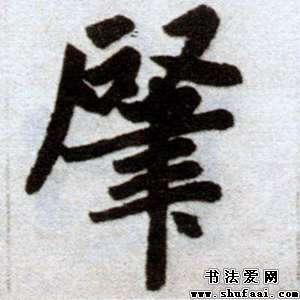 肈
书法爱网
www.shufaai.com